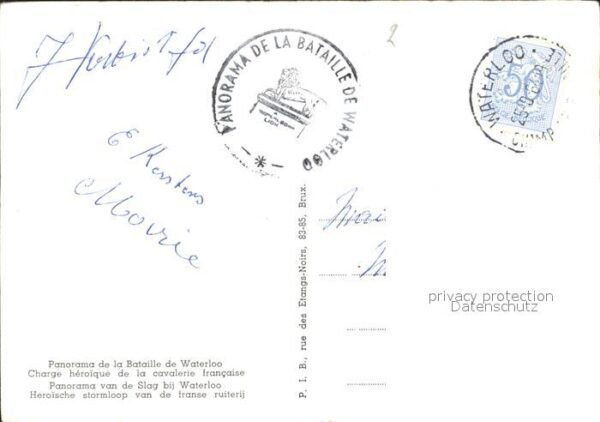 2
PANORAMA DE LA BATAILLE DE WATERLOO
LION
WATERLOO
50
E Kerstens
Marie
P. I. B., rue des Etangs-Noirs, 83-85, Brux.
privacy protection
Datenschutz
Panorama de la Bataille de Waterloo
Charge héroïque de la cavalerie française
Panorama van de Slag bij Waterloo
Heroïsche stormloop van de franse ruiterij